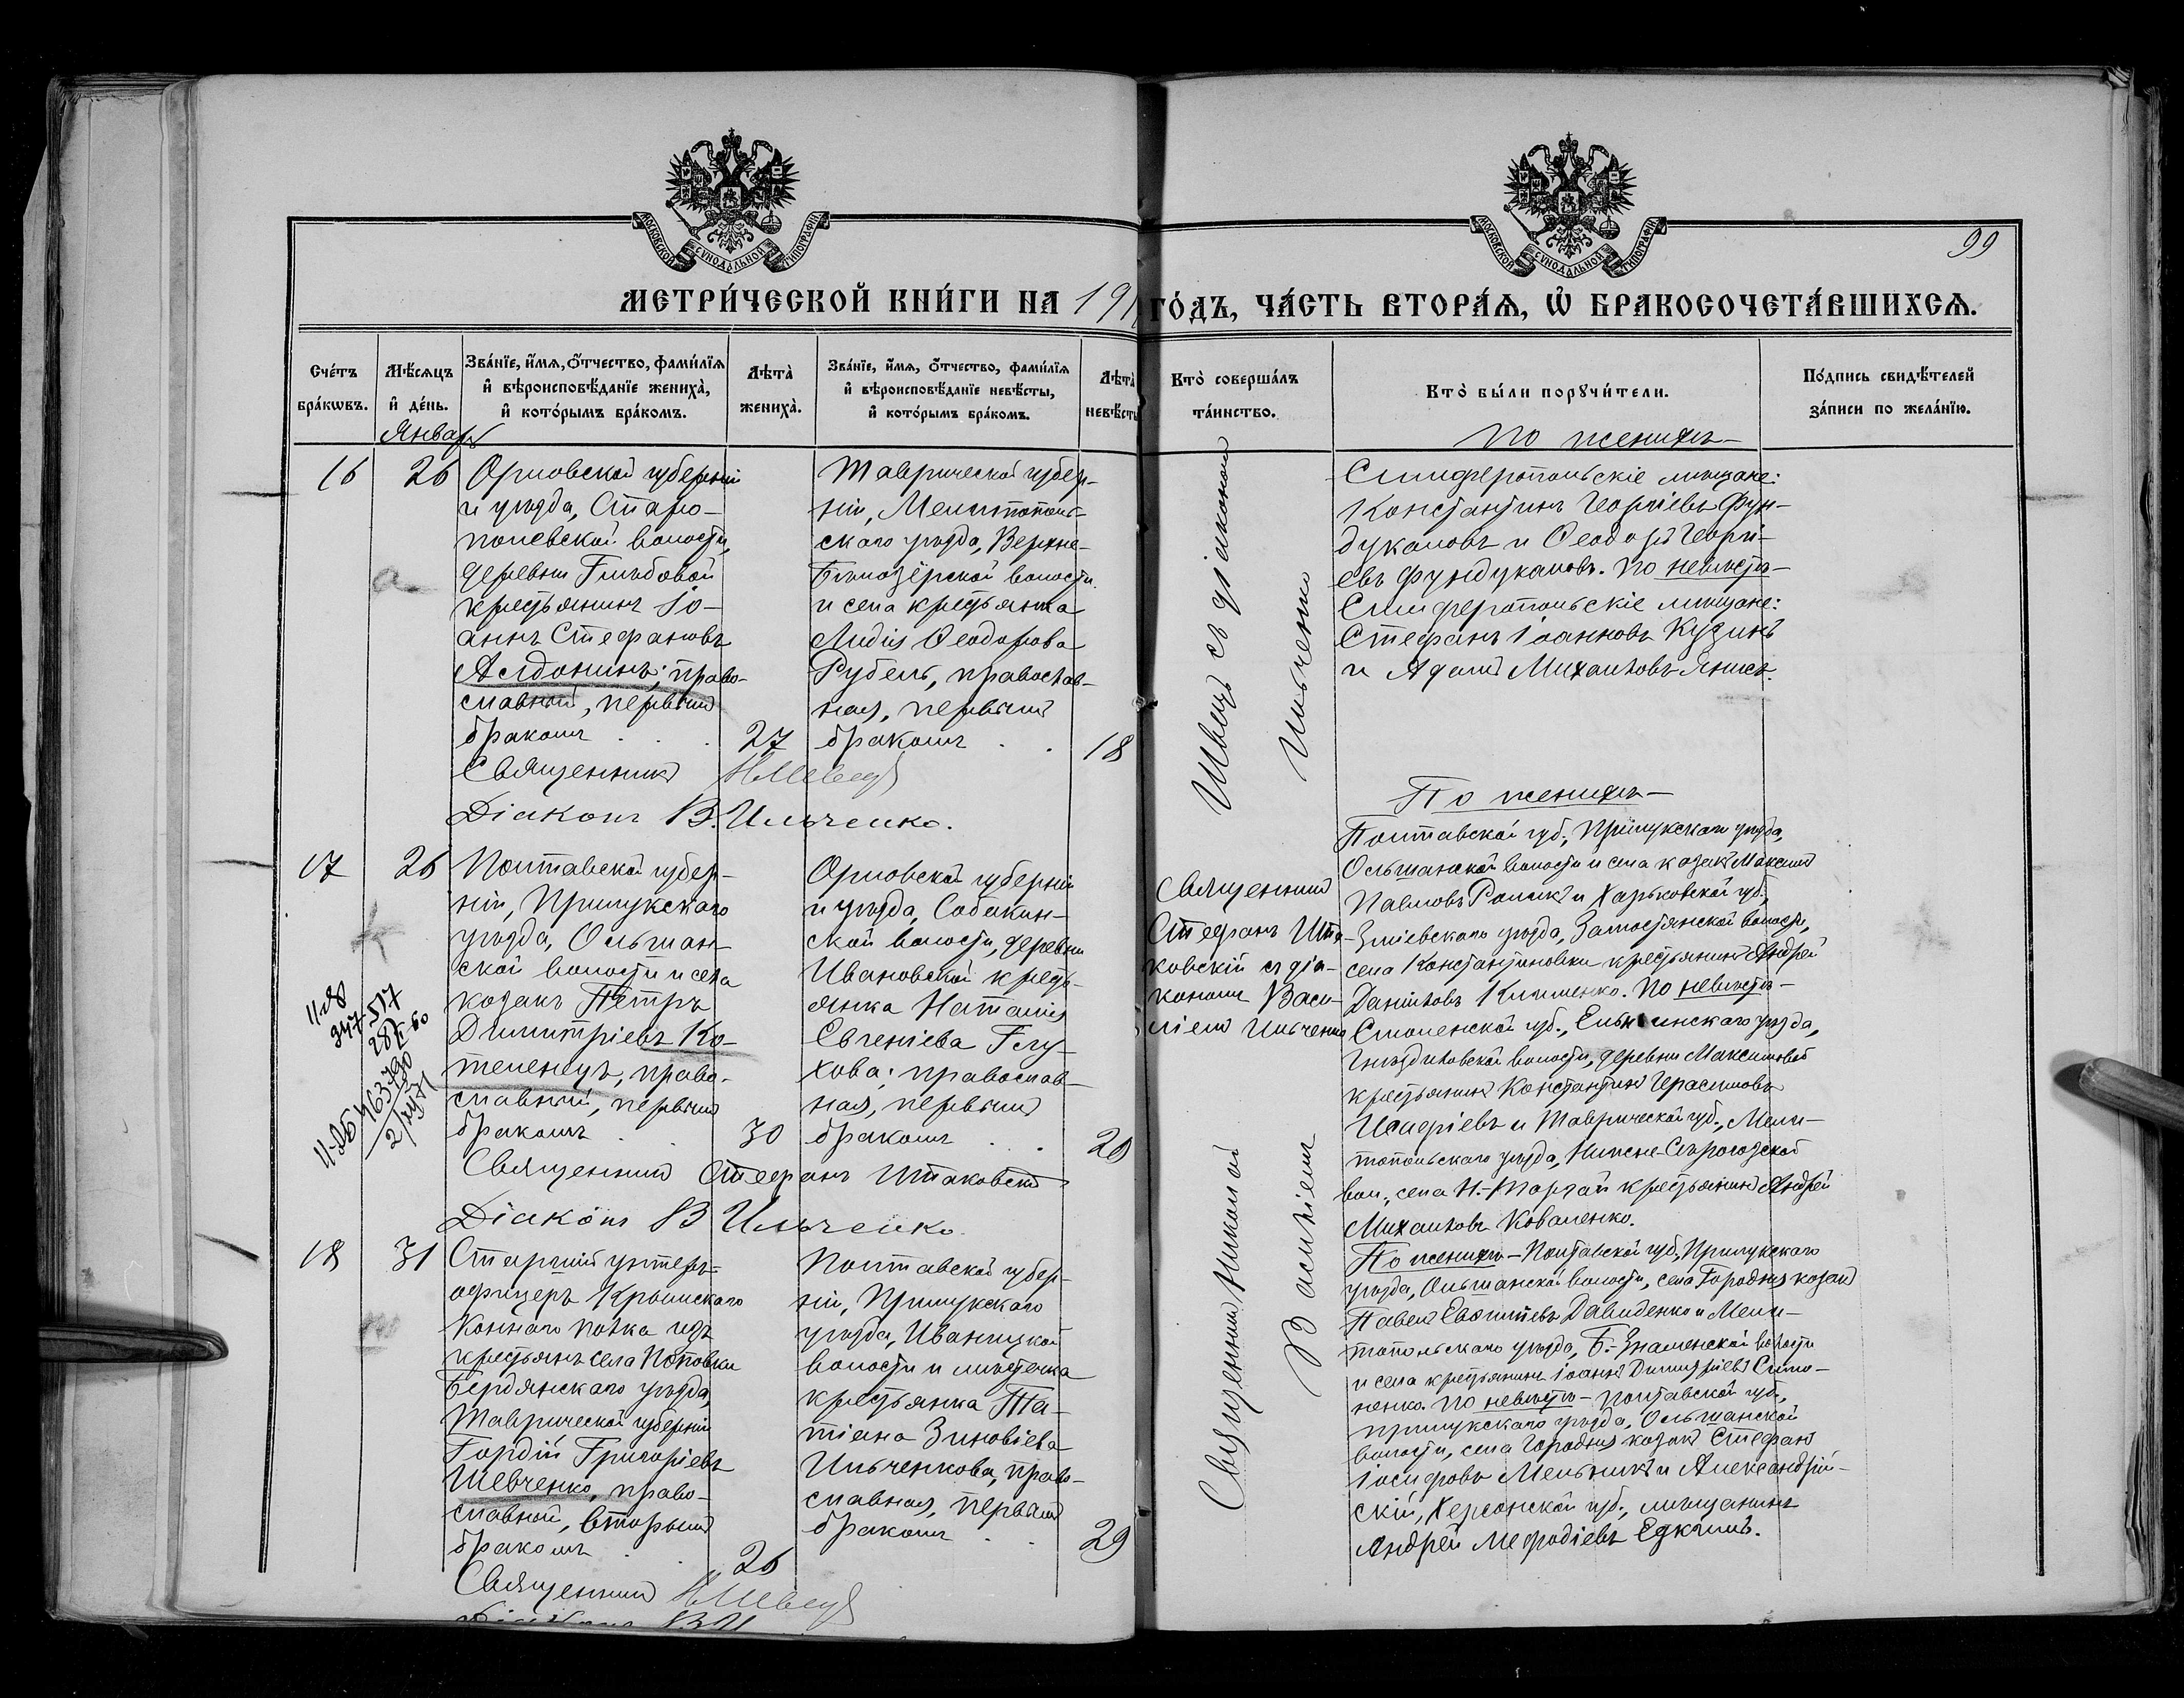 МОСКОВСКОЙ СУНОДАЛЬНОЙ ТИПОГРАФІИ
МОСКОВСКОЙ СУНОДАЛЬНОЙ ТИПОГРАФІИ
99
МЕТРИ́ЧЕСКОЙ КНИ́ГИ НА 191 ГО́ДЪ, ЧА́СТЬ ВТОРА́Я, Ѡ҆ БРАКОСОЧЕТА́ВШИХСЯ.
Сче́тъ бра́кѡвъ.
Мѣ́сяцъ и҆ де́нь.
Зва́нїе, и҆́мя, ѻ҆́тчество, фами́лїя
и҆ вѣроисповѣ́данїе жениха̀,
и҆ кото́рымъ бра́комъ.
Лѣта̀ жениха̀.
Зва́нїе, и҆́мя, ѻ҆́тчество, фами́лїя
и҆ вѣроисповѣ́данїе невѣ́сты,
и҆ кото́рымъ бра́комъ.
Лѣта̀ невѣ́сты
Кто̀ соверша́лъ
та́инство.
Кто̀ бы́ли порꙋчи́тели.
По́дпись свидѣ́телей
за́писи по жела́нїю.
Январь
16
26
Орловской губерніи
и уѣзда, Старо-
полевской волости,
деревни Глѣбовой
крестьянинъ Іо-
аннъ Стефановъ
Алдонинъ; право-
славный, первымъ
бракомъ . . .
27
Таврической губер-
ніи, Мелитополь-
скаго уѣзда, Верхне-
Бѣлозёрской волости
и села крестьянка
Лидія Ѳеодорова
Рубель, православ-
ная, первымъ
бракомъ . .
18
Священникъ Н Швецъ
Діаконъ В. Ильченко.
Швецъ съ діакономъ
Ильченко
По женихѣ-
Симферопольскіе мѣщане:
Константинъ Георгіевъ Фун-
дукаловъ и Ѳеодоръ Георгі-
евъ Фундукаловъ. По невѣстѣ-
Симферопольскіе мѣщане:
Стефанъ Іоанновъ Кузинъ
и Адамъ Михаиловъ
17
26
Полтавской губер-
ніи, Прилукскаго
уѣзда, Ольшан-
ской волости и села
козакъ Петръ
Димитріевъ Ко-
теленецъ, право-
славный, первымъ
бракомъ . .
30
Орловской губерніи
и уѣзда, Собакин-
ской волости, деревни
Ивановской кресть-
янка Наталія
Евгеніева Глу-
хова; православ-
ная, первымъ
бракомъ . .
20
Священникъ Стефанъ Штаковскій
Діаконъ В Ильченко.
Священникъ
Стефанъ Шта-
ковскій съ діа-
кономъ Васи-
ліемъ Ильченко
По женихѣ-
Полтавской губ., Прилукскаго уѣзда,
Ольшанской волости и села козакъ Максимъ
Павловъ и Харьковской губ.,
Зміевскаго уѣзда, Замостянской волости,
села Константиновки крестьянинъ Андрей
Даніиловъ Клименко. По невѣстѣ-
Смоленской губ., Ельнинскаго уѣзда,
Гнѣздиловской волости, деревни Максимовой
крестьянинъ Константинъ Герасимовъ
и Таврической губ., Мели-
топольскаго уѣзда, Нижне-Сѣрогозской
вол., села Н.-Торгай крестьянинъ Андрей
Михаиловъ Коваленко.
18
31
Старшій унтеръ-
офицеръ Крымскаго
Коннаго полка изъ
крестьянъ села Поповки
Бердянскаго уѣзда,
Таврической губерніи
Гордій Григоріевъ
Шевченко, право-
славный, вторымъ
бракомъ . .
26
Полтавской губер-
ніи, Прилукскаго
уѣзда, Иваницкой
волости и мѣстечка
крестьянка Та-
тіана Зиновіева
Ильченкова, право-
славная, первымъ
бракомъ . .
29
Священникъ Н Швецъ
Діаконъ В И
Священникъ Николай
Василіемъ
По женихѣ-Полтавской губ., Прилукскаго
уѣзда, Ольшанской волости, села Городня козакъ
Павелъ Давиденко и Мели-
топольскаго уѣзда, Б.-Знаменской волости
и села крестьянинъ Іоаннъ Димитріевъ Симо-
ненко. По невѣстѣ-Полтавской губ.,
Прилукскаго уѣзда, Ольшанской
волости, села Городня козакъ Стефанъ
Іосифовъ Мельникъ и Александрій-
скій, Херсонской губ., мѣщанинъ
Андрей Меѳодіевъ